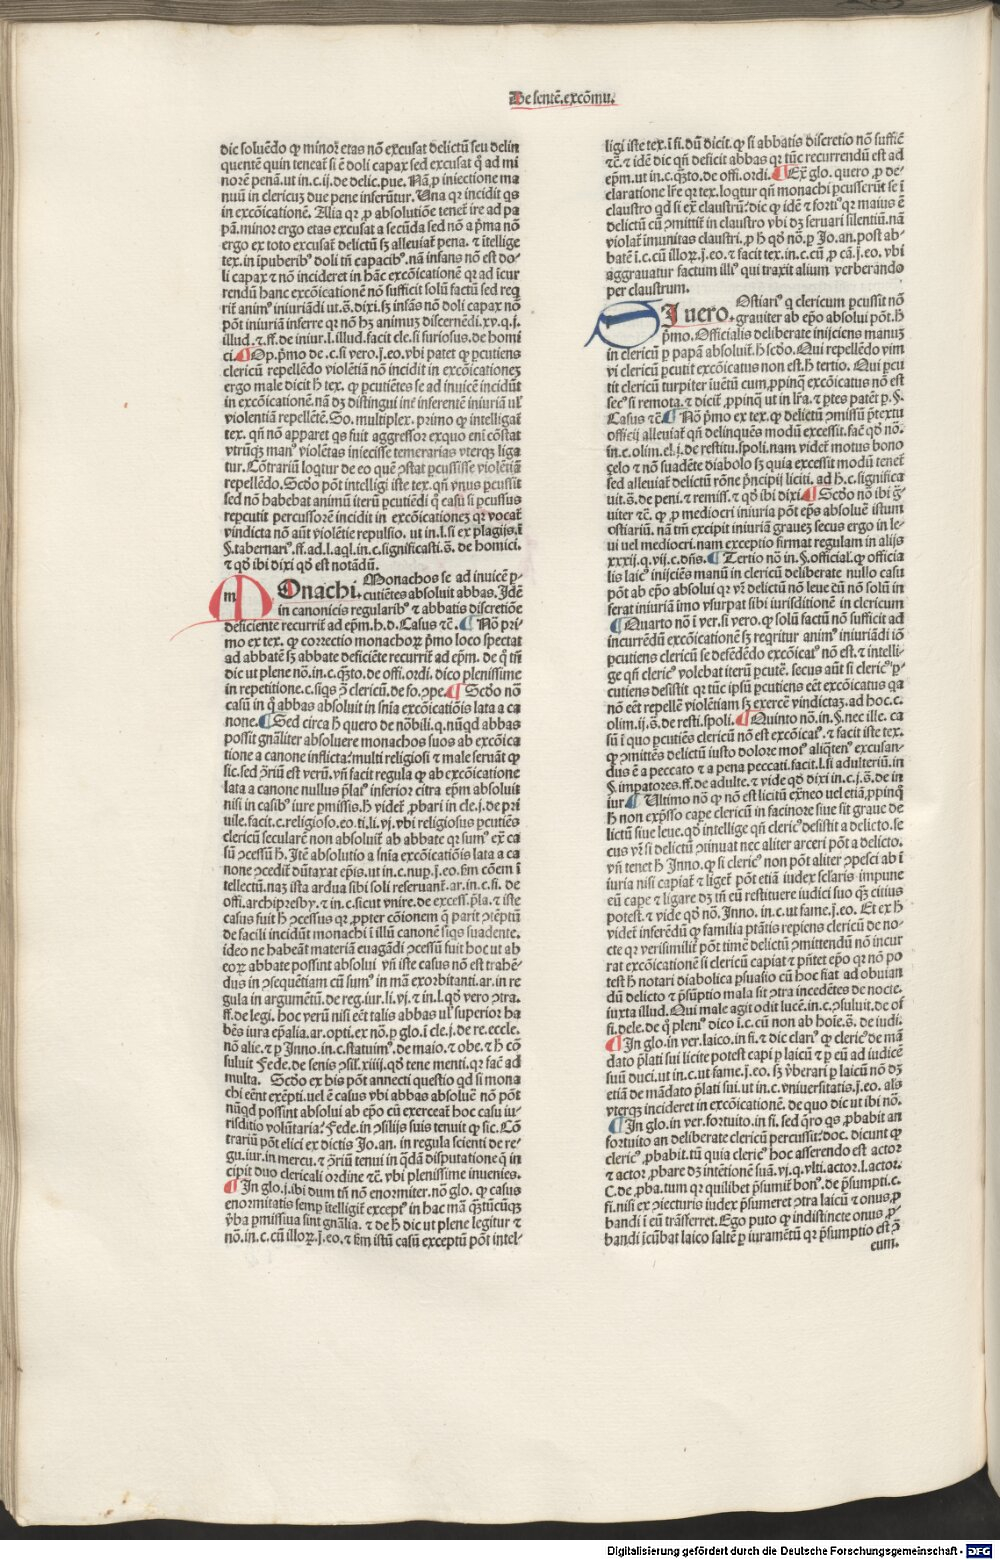 De sentē.excōmu.
dic soluēdo ꝙ minoꝛ etas nō excusat delictū seu delin
quentē quin teneat̉ si ē doli capax sed excusat q̇ ad mi
norē penā.ut in.c.ij.de delic.pue. Nā ꝓ iniectione ma
nuū in clericuꝫ due pene inferūtur. Una qꝛ incidit q̇s
in excōicationē. Alia qꝛ ꝓ absolutiōe tenet̉ ire ad pa
pā.minor ergo etas excusat a secūda sed nō a p̄ma nō
ergo ex toto excusat̉ delictū sꝫ alleuiat̉ pena. ⁊ ītellige
tex. in īpuberibꝰ doli tn̄ capacibꝰ.nā infans nō est do⸗
li capax ⁊ nō incideret in hāc excōicationē qꝛ ad īcur
rendū hanc excōicationē nō sufficit solū factū sed req̇
rit̉ animꝰ iniuriādi ut.s̄.dixi.sꝫ infās nō doli capax nō
pōt iniuriā inferre qꝛ nō hꝫ animuꝫ discernēdi.xv.q.j.
illud.⁊.ff.de iniur.l.illud.facit cle.si furiosus.de homi
ci.¶Op.p̄mo de.c.si vero.j.eo.vbi patet ꝙ ꝑcutiens
clericū repellēdo violētiā nō incidit in excōicationeꝫ
ergo male dicit h̄ tex. ꝙ ꝑcutiētes se ad inuicē incidūt
in excōicationē.nā dꝫ distingui int̉ inferentē iniuriā ul̓
violentiā repellētē. So. multiplex. primo ꝙ intelligat̉
tex. qn̄ nō apparet q̇s fuit aggressor exquo eni cōstat
vtrūqꝫ manꝰ violētas iniecisse temerarias vterqꝫ liga
tur. Cōtrariū loqtur de eo quē ꝯstat ꝑcussisse violētiā
repellēdo. Scd̓o pōt intelligi iste tex.qn̄ vnus ꝑcussit
sed nō habebat animū iterū ꝑcutiēdi q̇ casu si ꝑcussus
reꝑcutit percussorē incidit in excōicationeꝫ qꝛ vocat̉
vindicta nō aūt violētie repulsio. ut in.l.si ex plagijs.ī
§.tabernariꝰ.ff.ad.l.aql.in.c.significasti.s̄. de homici.
⁊ qd̓ ibi dixi qd̓ est notādū.
m Onachi. Monachos se ad inuicē ꝑ⸗
cutiētes absoluit abbas. Idē
in canonicis regularibꝰ ⁊ abbatis discretiōe
deficiente recurrit̉ ad ep̄m.h.d. Casus ⁊c̄. ¶ Nō pri
mo ex tex. ꝙ correctio monachoꝝ p̄mo loco spectat
ad abbatē sꝫ abbate deficiēte recurrit̉ ad ep̄m. de q̇ tn̄
dic ut plene nō.in.c.q̄ꝫto.de offi.ordi. dico plenissime
in repetitione.c.siq̇s ꝯ̄ clericū.de fo.ꝯpe.¶ Scd̓o nō
casū in q̇ abbas absoluit in sn̄ia excōicatiōis lata a ca
none.¶Sed circa h̄ quero de nōbili.q.nūqd abbas
possit gn̄aliter absoluere monachos suos ab excōica
tione a canone inflicta.multi religiosi ⁊ male seruāt ꝙ
sic.sed ꝯ̄riū est verū.vn̄ facit regula ꝙ ab excōicatione
lata a canone nullus p̄latꝰ inferior citra ep̄m absoluit
nisi in casibꝰ iure ꝑmissis.h̄ videt̉ ꝓbari in cle.j.de pri
uile.facit.c.religioso.eo.ti.li.vj.vbi religiosus ꝑcutiēs
clericū secularē non absoluit̉ ab abbate qꝛ sumꝰ ex̄ ca
sū ꝯcessū h̄. Itē absolutio a sn̄ia excōicatiōis lata a ca
none ꝯcedit̉ dūtaxat ep̄is.ut in.c.nup.j.eo.ẜm cōem ī
tellectū.naꝫ ista ardua sibi soli reseruant̉.ar.in.c.fi. de
offi.archipresby.⁊ in.c.sicut vnire.de excess.p̄la.⁊ iste
casus fuit h̄ ꝯcessus qꝛ ꝓpter cōionem q̄ parit ꝯtēptū
de facili incidūt monachi ī illū canonē siq̇s suadente.
ideo ne habeāt materiā euagādi ꝯcessū fuit hoc ut ab
eoꝝ abbate possint absolui vn̄ iste casus nō est trahē⸗
dus in ꝯsequētiam cū sumꝰ in mā exorbitanti.ar.in re
gula in argumētū.de reg.iur.li.vj.⁊ in.l.qd̓ vero ꝯtra.
ff.de legi. hoc verū nisi eēt talis abbas ul̓ superior ha
bēs iura ep̄alia.ar.opti.ex nō.ꝑ glo.ī cle.j.de re.eccle.
nō alie.⁊ ꝑ Inno.in.c.statuimꝰ.de maio.⁊ obe.⁊ h̄ cō
suluit Fede.de senis ꝯsil̓.xiiij.qd̓ tene menti.qꝛ fac̄ ad
multa. Scd̓o ex his pōt annecti questio qd si mona
chi eēnt exēpti.vel ē casus vbi abbas absoluē nō pōt
nūqd possint absolui ab ep̄o cū exerceat̉ hoc casu iu⸗
risditio volūtaria. Fede.in ꝯsilijs suis tenuit ꝙ sic. Cō
trariū pōt elici ex dictis Jo.an. in regula scienti de re⸗
gu.iur.in mercu.⁊ ꝯ̄riū tenui in q̄dā disputatione q̄ in
cipit duo clericali ordine ⁊c̄. vbi plenissime inuenies.
¶In glo.j.ibi dum tn̄ nō enormiter.nō glo. ꝙ casus
enormitatis semꝑ ītelligit̉ exceptꝰ in hac mā q̄ꝫtūcūqꝫ
v̄ba ꝑmissiua sint gn̄alia. ⁊ de h̄ dic ut plene legitur ⁊
nō.in.c.cū illoꝝ.j.eo.⁊ ẜm istū casū exceptū pōt intel⸗
ligi iste tex.ī fi.dū dicit.ꝙ si abbatis discretio nō suffic̄
⁊c̄.⁊ idē dic qn̄ deficit abbas qꝛ tūc recurrendū est ad
ep̄m.ut in.c.q̄ꝫto.de offi.ordi.¶Ex̄ glo. quero ꝓ de⸗
claratione lr̄e qꝛ tex.loqtur qn̄ monachi ꝑcusserūt se ī
claustro qd si ex̄ claustrū.dic ꝙ idē ⁊ fortiꝰ qꝛ maius ē
delictū cū ꝯmittit̉ in claustro vbi dꝫ seruari silentiū.nā
violat̉ imunitas claustri.ꝓ h̄ qd̓ nō.ꝑ Jo.an.post ab⸗
batē ī.c.cū illoꝝ.j.eo.⁊ facit tex.in.c.cū ꝓ cā.j.eo.vbi
aggrauatur factum illiꝰ qui traxit alium verberando
per claustrum.
SI uero. Ostiariꝰ q̇ clericum ꝑcussit nō
grauiter ab ep̄o absolui pōt.h̄
p̄mo. Officialis deliberate inijciens manuꝫ
in clericū ꝑ papā absoluit̉.h̄ scd̓o. Qui repellēdo vim
vi clericū ꝑcutit excōicatus non est.h̄ tertio. Qui ꝑcu
tit clericū turpiter īuētū cum ꝓpinq̄ excōicatus nō est
secꝰ si remota.⁊ dicit̉ ꝓpinq̄ ut in lr̄a.⁊ ꝑtes patēt ꝑ.§.
Casus ⁊c̄.¶ Nō p̄mo ex tex.ꝙ delictū ꝯmissū p̄textu
officij alleuiat̉ qn̄ delinquēs modū excessit.fac̄ qd̓ nō.
in.c.olim.el.j.de restitu.spoli.nam videt̉ motus bono
çelo ⁊ nō suadēte diabolo sꝫ quia excessit modū tenet̉
sed alleuiat̉ delictū rōne p̄ncipij liciti. ad h̄.c.significa
uit.s̄.de peni.⁊ remiss.⁊ qd̓ ibi dixi.¶ Scd̓o nō ibi g̉ꝰ
uiter ⁊c̄. ꝙ ꝓ mediocri iniuria pōt ep̄s absoluē istum
ostiariū. nā tm̄ excipit iniuriā graueꝫ secus ergo in le⸗
ui uel mediocri.nam exceptio firmat regulam in alijs
xxxij.q.vij.c.dn̄s.¶ Tertio nō in.§.official̓.ꝙ officia
lis laicꝰ inijciēs manū in clericū deliberate nullo casu
pōt ab ep̄o absolui qꝛ vr̄ delictū nō leue cū nō solū in
ferat iniuriā imo vsurpat sibi iurisditionē in clericum
¶Quarto nō ī ver.si vero.ꝙ solū factū nō sufficit ad
incurrēdū excōicationē sꝫ reqritur animꝰ iniuriādi iō
ꝑcutiens clericū se defēdēdo excōicatꝰ nō est.⁊ intelli⸗
ge qn̄ clericꝰ volebat iterū ꝑcutē. secus aūt si clericꝰ ꝑ⸗
cutiens desistit qꝛ tūc ipsū ꝑcutiens eēt excōicatus qa
nō eēt repellē violētiam sꝫ exercē vindictaꝫ.ad hoc.c.
olim.ij.s̄.de resti.spoli. ¶Quinto nō.in.§.nec ille. ca
sū ī quo ꝑcutiēs clericū nō est excōicatꝰ.⁊ facit iste tex.
ꝙ ꝯmittēs delictū iusto dolore motꝰ aliq̄tenꝰ excusan⸗
dus ē a peccato ⁊ a pena peccati.facit.l.si adulteriū.in
§.impatores.ff.de adulte.⁊ vide qd̓ dixi in.c.j.s̄.de in
iur.¶ Ultimo nō ꝙ nō est licitū ex̄neo uel etiā.ꝓpinq̇
h̄ non exp̄sso cape clericū in facinore siue sit graue de
lictū siue leue.qd̓ intellige qn̄ clericꝰ desistit a delicto.se
cus vr̄ si delictū ꝯtinuat nec aliter arceri pōt a delicto.
vn̄ tenet h̄ Inno.ꝙ si clericꝰ non pōt aliter ꝯpesci ab ī
iuria nisi capiat̉ ⁊ liget̉ pōt etiā iudex sclaris impune
eū cape ⁊ ligare dꝫ tn̄ eū restituere iudici suo q̄ꝫ citius
potest.⁊ vide qd̓ nō. Inno. in.c.ut fame.j.eo. Et ex h̄
videt̉ inferēdū ꝙ familia ptātis reꝑiens clericū de no⸗
cte qꝛ verisimilit̉ pōt timē delictū ꝯmittendū nō incur
rat excōicationē si clericū capiat ⁊ p̄ntet ep̄o qꝛ nō po
test h̄ notari diabolica ꝑsuasio cū hoc fiat ad obuian
dū delicto ⁊ p̄sūptio mala sit ꝯtra incedētes de nocte.
iuxta illud. Qui male agit odit lucē.in.c.ꝯsuluit.de of
fi.dele.de q̇ pleniꝰ dico ī.c.cū non ab hoīe.s̄. de iudi.
¶In glo.in ver.laico.in fi.⁊ dic clariꝰ ꝙ clericꝰ de mā
dato p̄lati sui licite potest capi ꝑ laicū ⁊ ꝑ eū ad iudicē
suū duci.ut in.c.ut fame.j.eo. sꝫ v̄berari ꝑ laicū nō dꝫ
etiā de mādato p̄lati sui.ut in.c.vniuersitatis.j.eo. als̄
vterqꝫ incideret in excōicationē. de quo dic ut ibi nō.
¶In glo.in ver.fortuito.in fi. sed q̄ro q̇s ꝓbabit an
fortuito an deliberate clericū percussit.doc. dicunt ꝙ
clericꝰ ꝓbabit.tū quia clericꝰ hoc asserendo est actor
⁊ actor ꝓbare dꝫ intētionē suā.vj.q.vlti.actor.l.actor.
C.de.ꝓba.tum qꝛ quilibet p̄sumit̉ bonꝰ.de p̄sumpti.c.
fi.nisi ex ꝯiecturis iudex p̄sumeret ꝯtra laicū ⁊ onus ꝓ
bandi ī eū trāsferret. Ego puto ꝙ indistincte onus ꝓ⸗
bandi īcūbat laico saltē ꝑ iuramētū qꝛ p̄sumptio est ꝯ̄
cum.
Digitalisierung gefördert durch die Deutsche Forschungsgemeinschaft - DFG